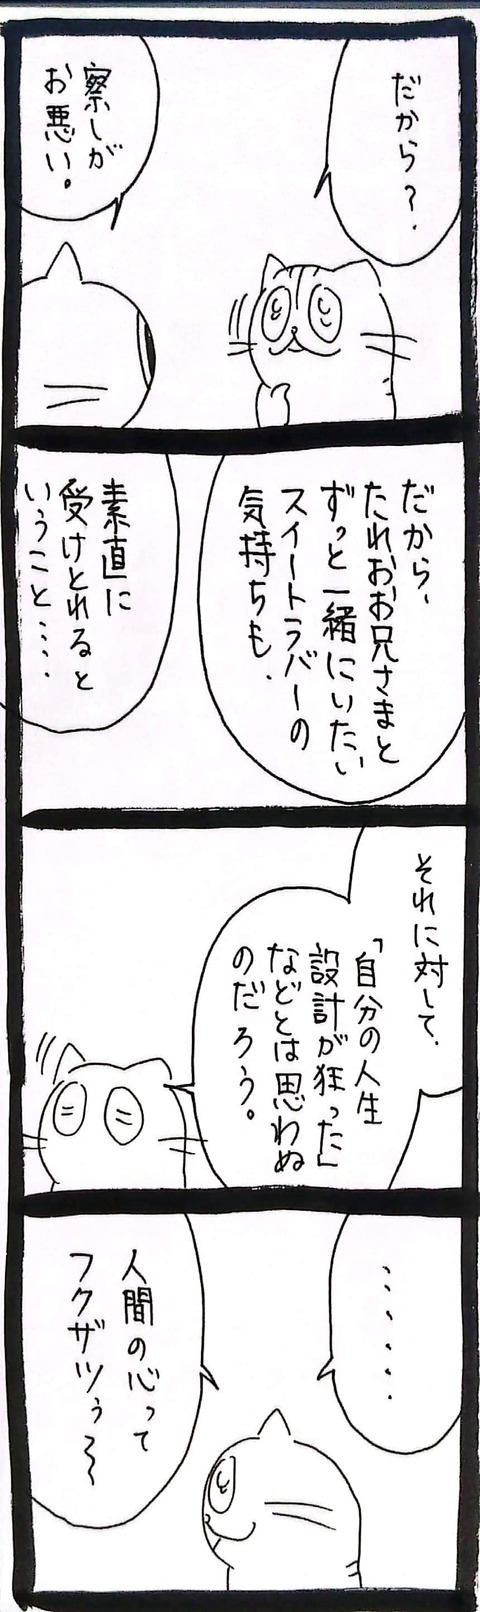 だから?
察しが
お悪い。
だから、
たれおお兄さまと
ずっと一緒にいたい
スイートラバーの
気持ちも、
素直に
受けとれると
いうこと‥‥
それに対して、
「自分の人生
設計が狂った」
などとは思わぬ
のだろう。
‥‥‥
人間の心って
フクザツぅ〜